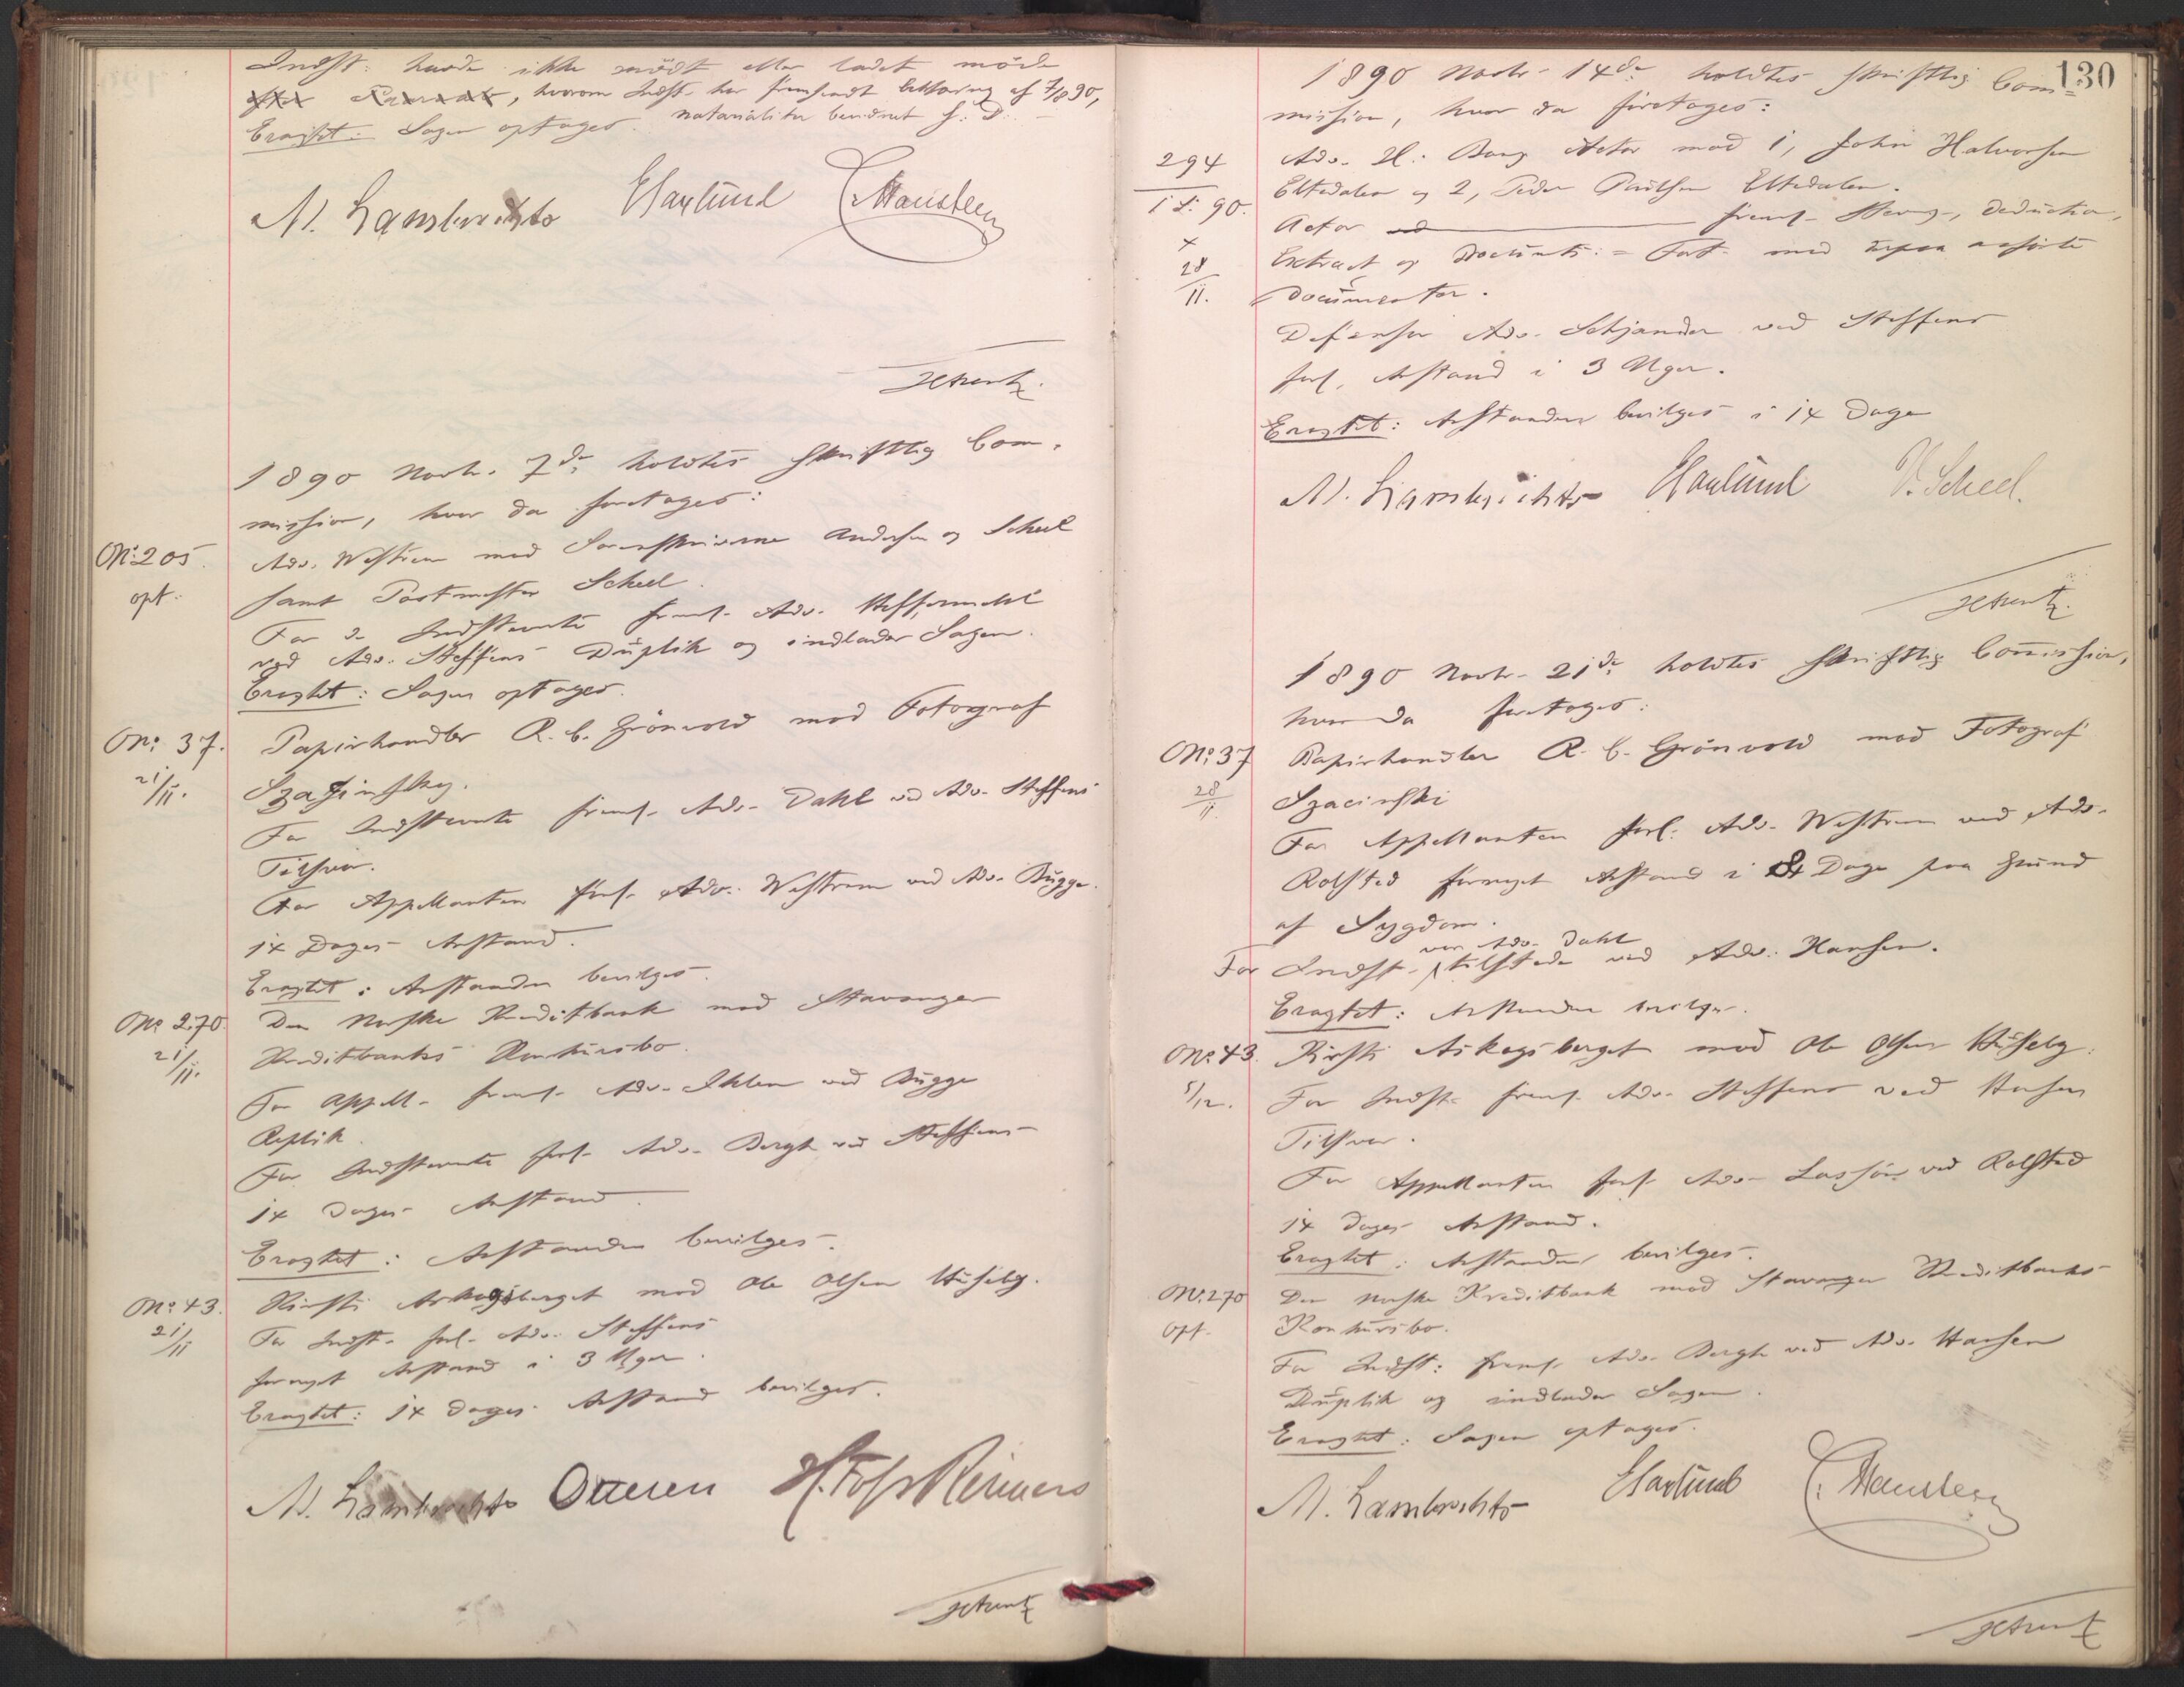 Indst: havde ikke mödt eller ladet möde
efter, hvorom Indst. har fremsendt Erklæring af 7/8 90,
Eragtet: Sagen optages. notarialiter bevidnet f. D.
M. Lambrechts EHaxlund CMansteen
JCkrentz.
1890 Novbr. 7de holdtes skriftlig Com-
mission, hvor da foretages:
No: 205. Adv. Westrum mod Sorenskriverne Andersen og Scheel
opt. samt Postmester Scheel.
For de Indstevnte frems. Adv.
ved Adv. Steffens Duplik og indlader Sagen.
Eragtet: Sagen optages.
No: 37. Papirhandler R. C. Grönvold mod Fotograf
21/11. Szacinsky.
For Indstevnte frems. Adv. Dahl ved Adv. Steffens
Tilsvar.
For Appellanten forl. Adv. Westrum ved Adv. Bugge
14 Dages Anstand.
Eragtet: Anstanden bevilges.
No 270. Den Norske Kreditbank mod Stavanger
21/11. Kreditbanks Konkursbo.
For Appell. frems. Adv. Ihlen ved Bugge
Replik.
For Indstevnte forl. Adv. Bergh ved Steffens
14 Dages Anstand.
Eragtet: Anstanden bevilges.
No: 43. Kirsti Askogsberget mod Ole Olsen Huselby.
21/11 For Indst. forl. Adv. Steffens
fornyet Anstand i 3 Uger.
Eragtet: 14 Dages Anstand bevilges.
M. Lambrechts Ottesen H. Foss Reimers
JCkrentz
130
1890 Novbr. 14de holdtes skriftlig Com=
mission, hvor da foretages:
294 Adv. H. Bang Actor mod 1, John Halvorsen
1 S: 90. Eltedalen og 2, Peder Paulsen Eltedalen.
Actor frems. Stevng, Deduction,
x Extract og Documents: = Fort. med derpaa anförte
28/11. Documenter.
Defensor Adv. Schjander ved Steffens
forl. Anstand i 3 Uger.
Eragtet: Anstanden bevilges i 14 Dage
M. Lambrechts EHaxlund V. Scheel.
JCkrentz.
1890 Novbr. 21de holdtes skriftlig Commission,
hvor da foretages:
No: 37 Papirhandler R. C. Grönvold mod Fotograf
28/11 Szacinski
For Appellanten forl. Adv. Westrum ved Adv.
Rolsted fornyet Anstand i 8 Dage paa Grund
af Sygdom.
var Adv. Dahl
For Indst. tilstede ved Adv. Hansen.
Eragtet: Anstanden bevilges.
No: 43. Kirsti Askogsberget mod Ole Olsen Huselby.
5/12. For Indst. frems. Adv. Steffens ved Hansen
Tilsvar.
For Appellanten forl. Adv. Lassön ved Rolsted
14 Dages Anstand.
Eragtet: Anstanden bevilges.
No: 270 Den norske Kreditbank mod Stavanger Kreditbanks
opt. Konkursbo.
For Indst: frems. Adv. Bergh ved Adv. Hansen
Duplik og indlader Sagen.
Eragtet: Sagen optages.
M. Lambrechts EHaxlund CMansteen
JCkrentz